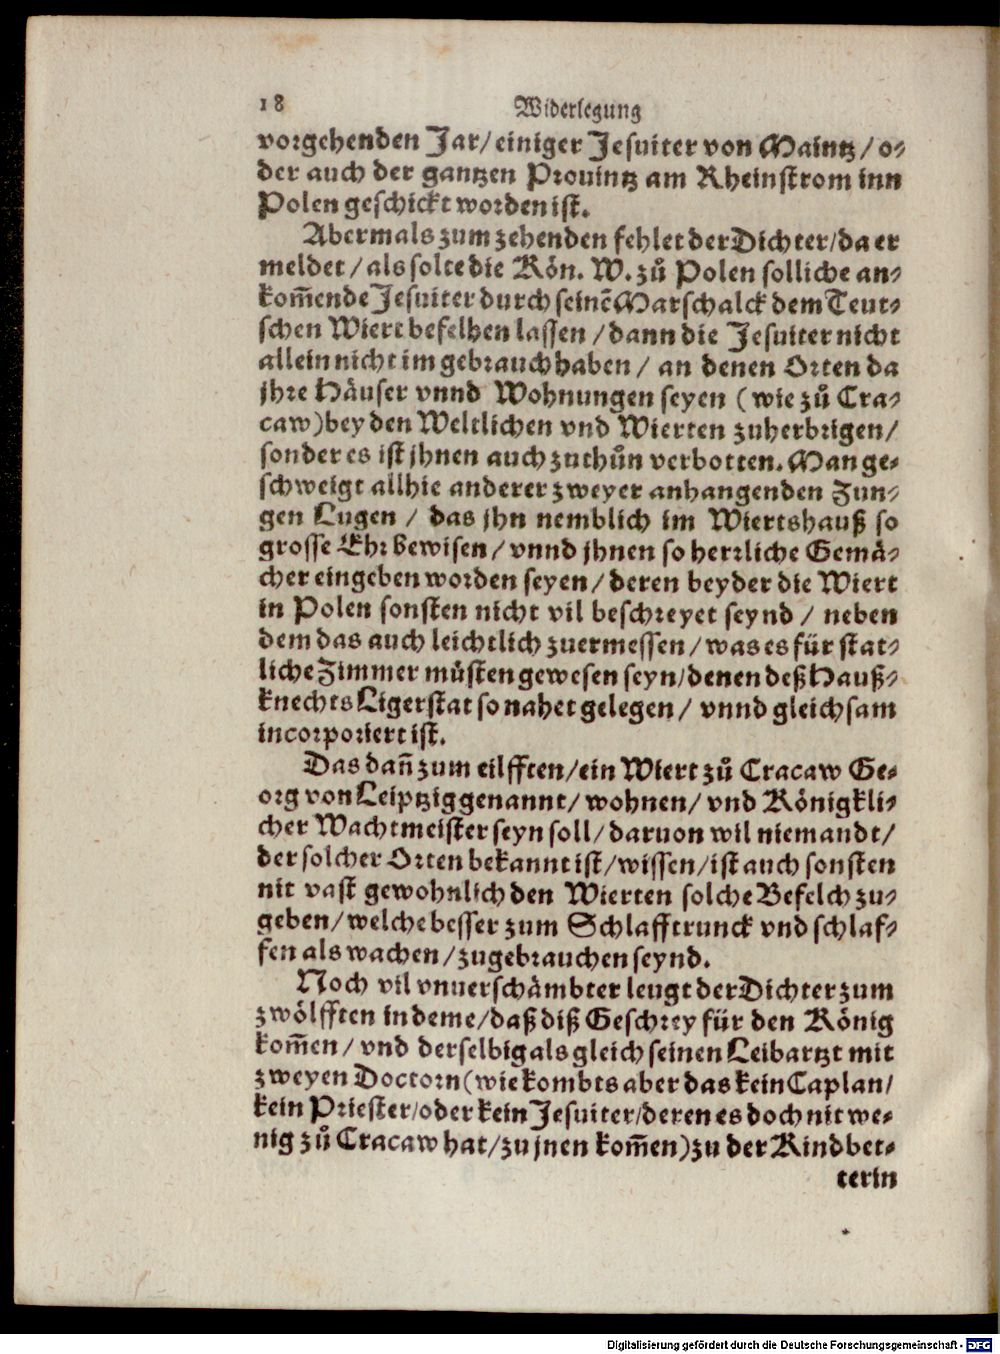 18 Widerlegung
vorgehenden Jar/ einiger Jesuiter von Maintz/ o-
der auch der gantzen Prouintz am Rheinstrom inn
Polen geschickt worden ist.
Abermals zum zehenden fehlet der Dichter/ da er
meldet/ als solte die Kön. W. zů Polen solliche an-
kom̄ende Jesuiter durch seinẽ Marschalck dem Teut-
schen Wiert befelhen lassen/ dann die Jesuiter nicht
allein nicht im gebrauch haben/ an denen Orten da
jhre Häuser vnnd Wohnungen seyen (wie zů Cra-
caw) bey den Weltlichen vnd Wierten zuherbrigen/
sonder es ist jhnen auch zuthůn verbotten. Man ge-
schweigt allhie anderer zweyer anhangenden Zun-
gen Lugen/ das jhn nemblich im Wiertshauß so
grosse Ehr bewisen/ vnnd jhnen so herrliche Gemä-
cher eingeben worden seyen/ deren beyder die Wiert
in Polen sonsten nicht vil beschreyet seynd/ neben
dem das auch leichtlich zuermessen/ was es für stat-
liche Zimmer müsten gewesen seyn/ denen deß Hauß-
knechts Ligerstat so nahet gelegen/ vnnd gleichsam
incorporiert ist.
Das dañ zum eilfften/ ein Wiert zů Cracaw Ge-
org von Leiptzig genannt/ wohnen/ vnd Königkli-
cher Wachtmeister seyn soll/ daruon wil niemandt/
der solcher Orten bekannt ist/ wissen/ ist auch sonsten
nit vast gewohnlich den Wierten solche Befelch zu-
geben/ welche besser zum Schlafftrunck vnd schlaf-
fen als wachen/ zugebrauchen seynd.
Noch vil vnuerschämbter leugt der Dichter zum
zwölfften in deme/ daß diß Geschrey für den König
kom̄en/ vnd derselbig als gleich seinen Leibartzt mit
zweyen Doctorn (wie kombts aber das kein Caplan/
kein Priester/ oder kein Jesuiter/ deren es doch nit we-
nig zů Cracaw hat/ zu jnen kom̄en) zu der Kindbet-
terin
Digitalisierung gefördert durch die Deutsche Forschungsgemeinschaft - DFG